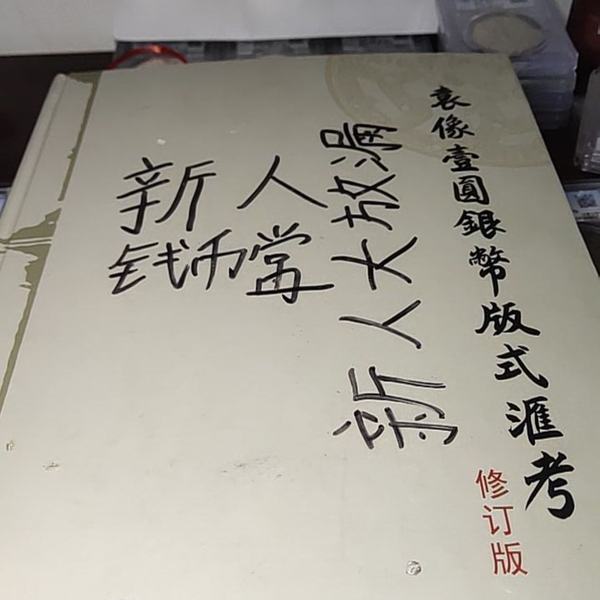 袁像壹圓銀幣版式滙考
修订版
新人
钱币
新人大放漏